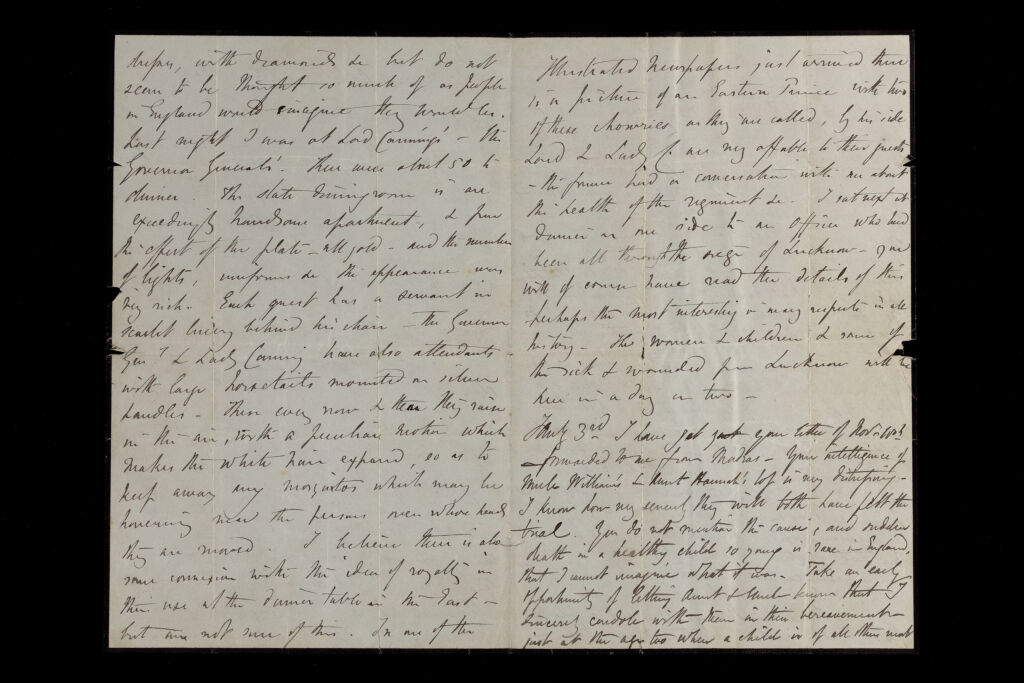 with diamonds &c but do not
seem to be thought so much of as people
in England would imagine they would be.
Last night I was at Lord Canning's – the
Governor General's. There were about 50 to
dinner. The state dining room is an
exceedingly handsome apartment, & from
the effect of the plate – all gold – and the number
of lights, uniforms &c the appearance was
very rich. Each guest has a servant in
scarlet livery behind his chair – the Governor
Genl & Lady Canning have also attendants –
with large horsetails mounted on silver
handles – These every now & then they raise
in the air, with a peculiar motion which
makes the white hair expand, so as to
keep away any mosquitos which may be
hovering near the persons over whose heads
they are moved. I believe there is also
some connexion with the idea of royalty in
their use at the dinner table in the East –
but am not sure of this. In one of the
Illustrated Newspapers just arrived there
is a picture of an Eastern Prince with two
of these chowries as they are called, by his side
Lord & Lady C. are very affable to their guests
– the former had a conversation with me about
the health of the regiment &c. I sat next at
dinner on one side to an officer who had
been all through the siege of Lucknow – you
will of course have read the details of this
perhaps the most interesting in many respects in all
history – The women & children & some of
the sick & wounded from Lucknow will be
here in a day or two –
3rd I have got just your letter of Nov
forwarded to me from Madras – Your intelligence of
Uncle William's & Aunt Hannah's loss is very distressing –
I know how very severely they will both have felt the
trial. You do not mention the cause, and sudden
death in a healthy child so young is rare in England,
that I cannot imagine what it was – Take an early
opportunity of letting Aunt & Uncle know that I
sincerely condole with them in their bereavement –
just at the age too when a child is of all others most